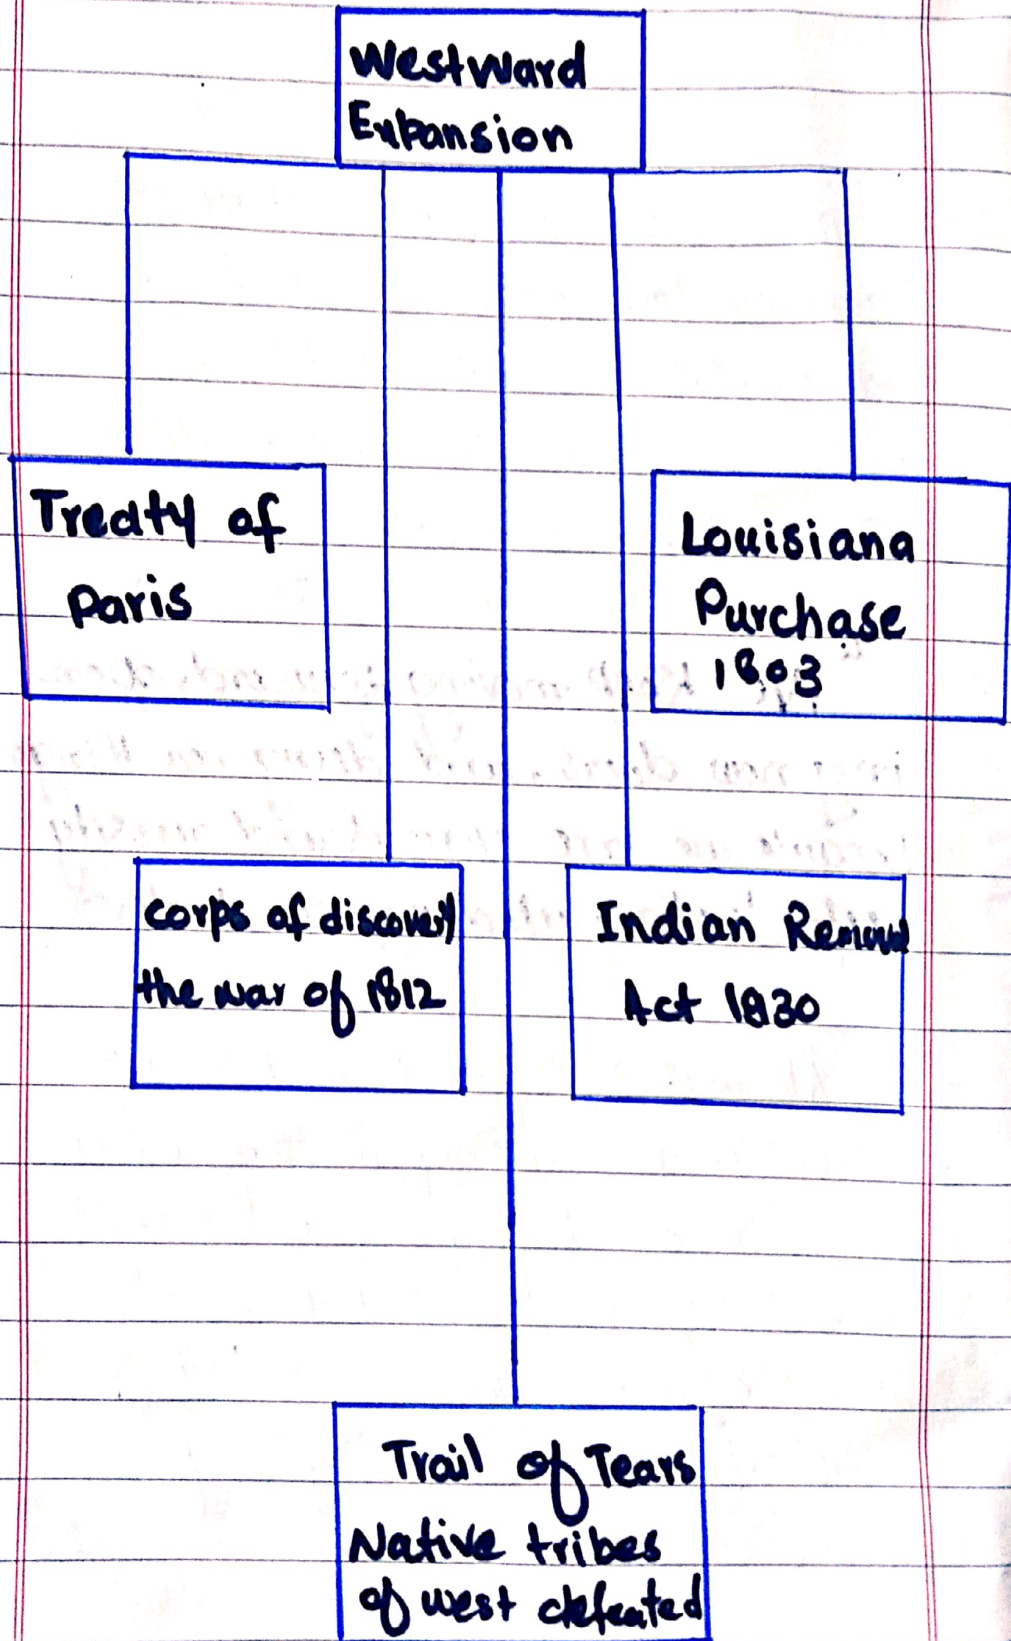 Westward
Expansion
Treaty of
Paris
Louisiana
Purchase
1803
corps of discovery
the war of 1812
Indian Removal
Act 1830
Trail of Tears
Native tribes
of west defeated